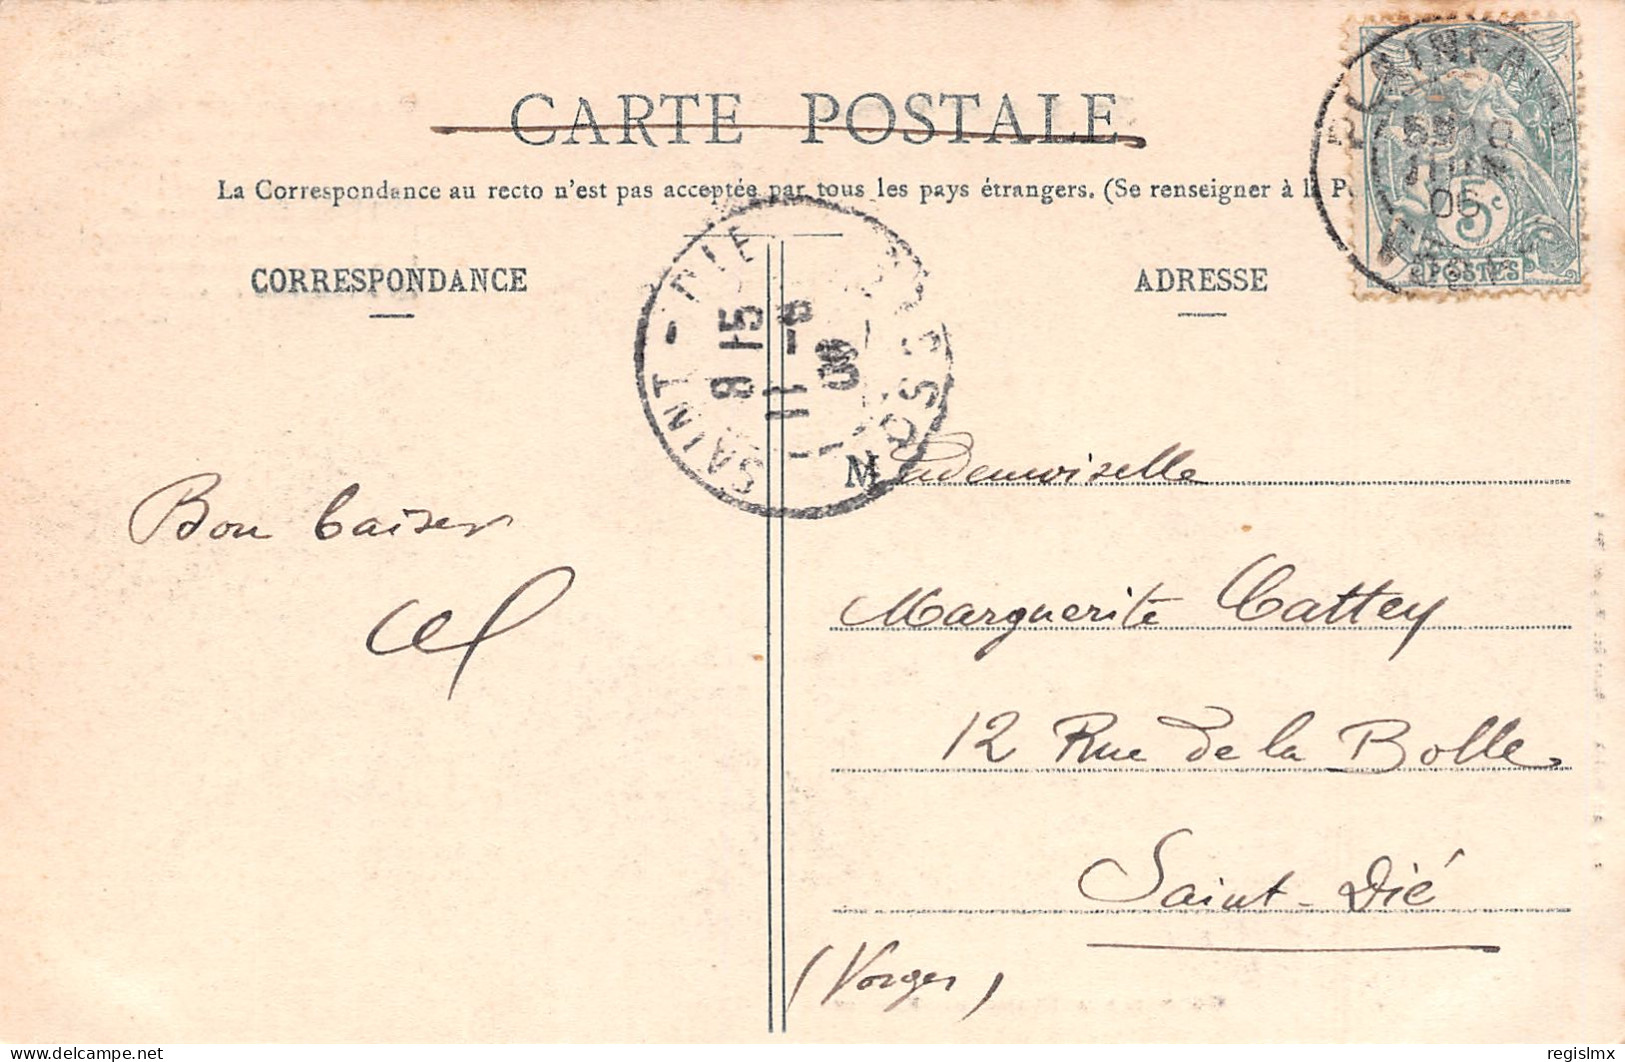 CARTE POSTALE
La Correspondance au recto n'est pas acceptée par tous les pays étrangers. (Se renseigner à la P
CORRESPONDANCE
ADRESSE
PLAINFAING
10
JUIN
05
5c
POSTES
SAINT-DIÉ
8 15
11 - 6
VOSGES
Bon baiser
Mademoiselle
Marguerite Cattey
12 Rue de la Bolle
Saint-Dié
(Vosges)
delcampe.net
regislmx